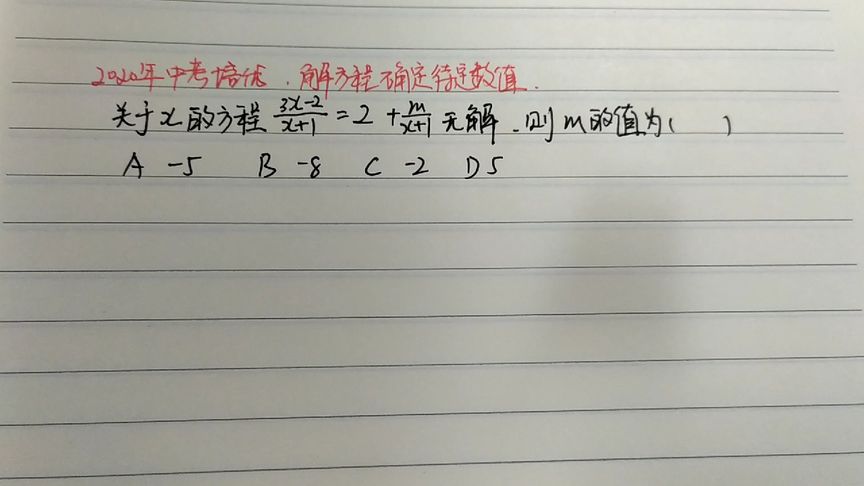 2020年中考培优.解方程确定待定数值.
关于x的方程 (3x-2)/(x+1) = 2 + m/(x+1) 无解.则m的值为( )
A -5 B -8 C -2 D 5